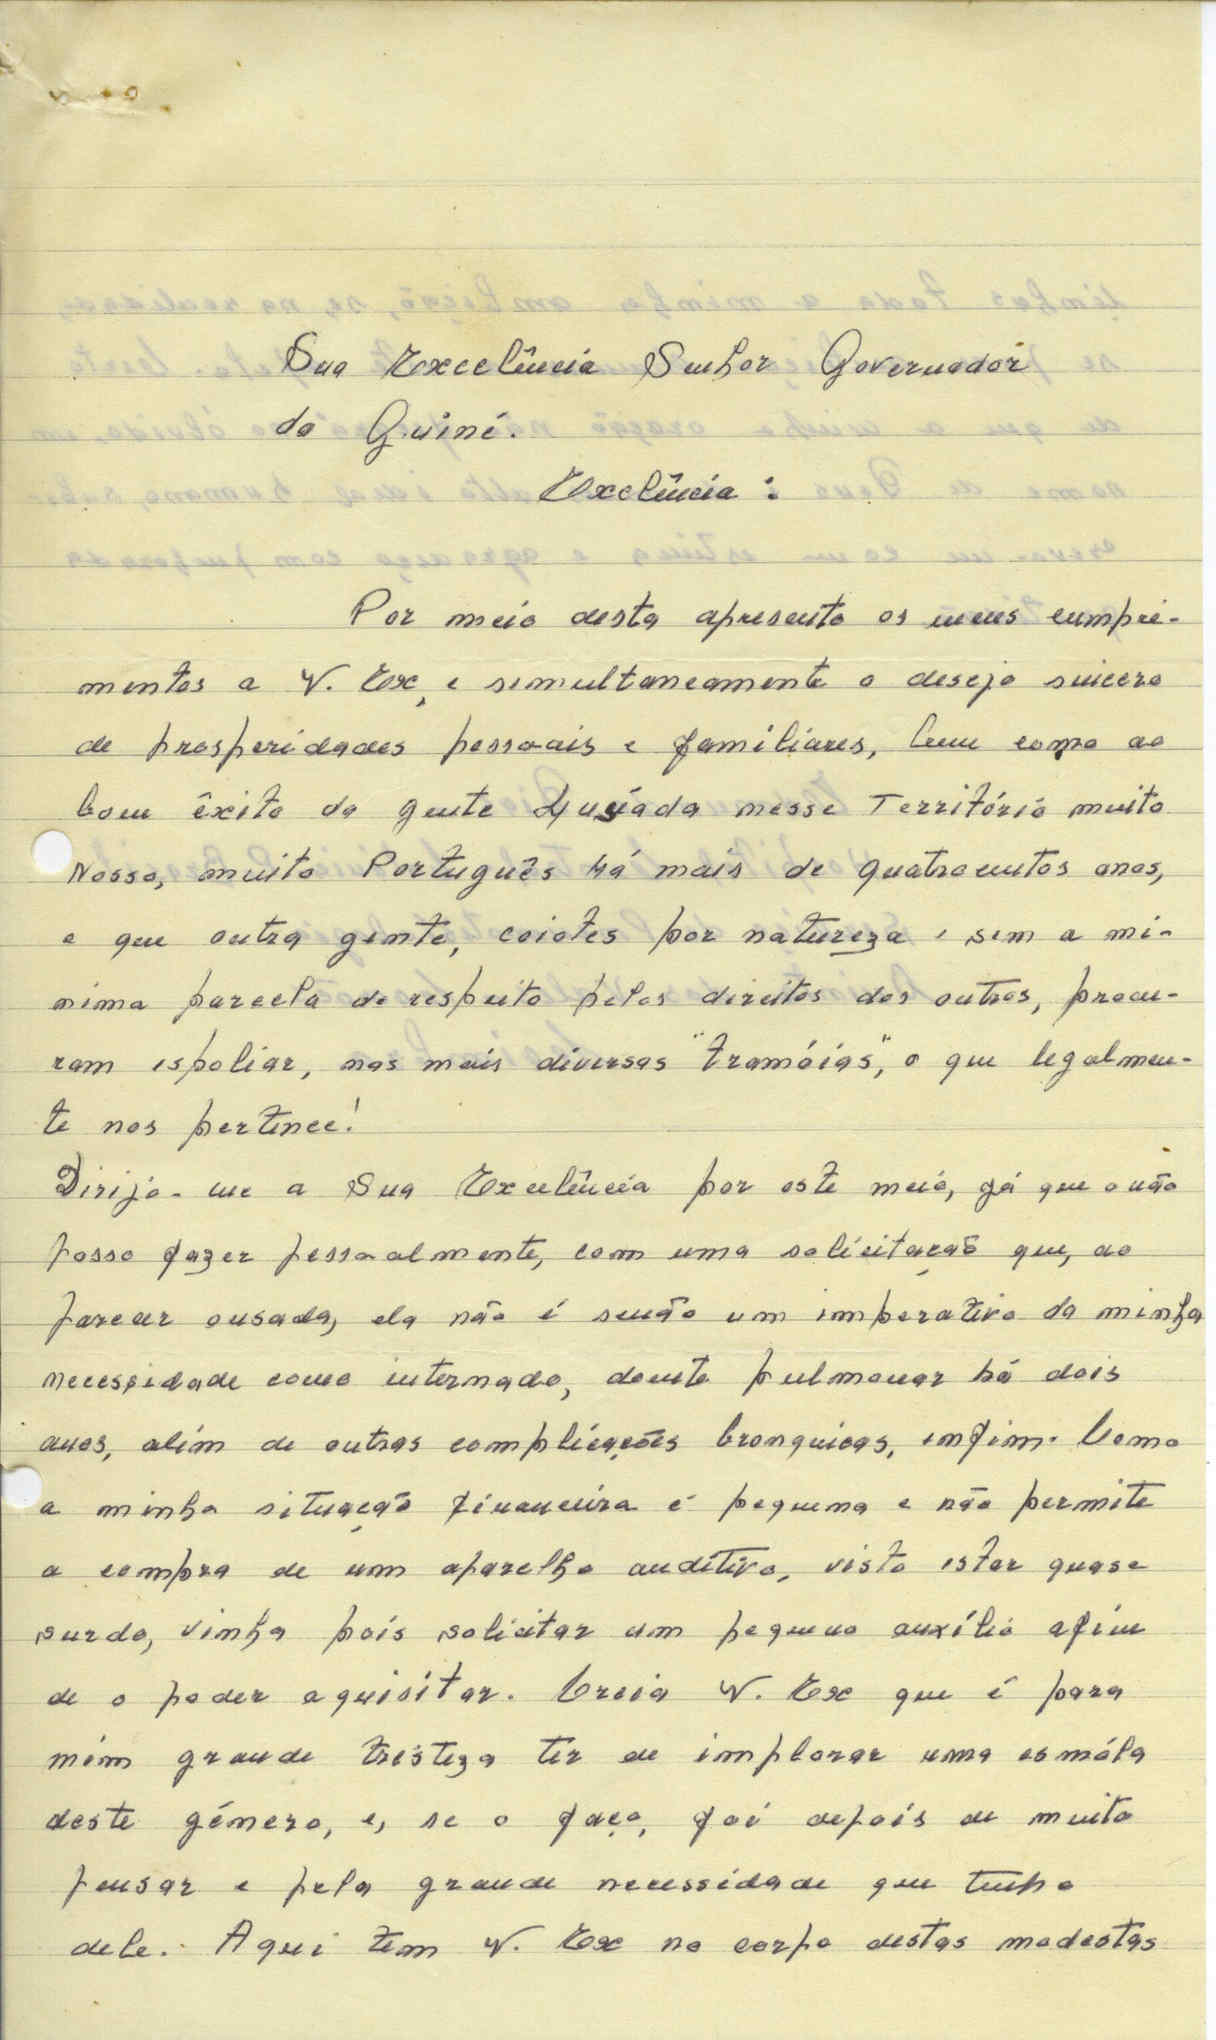 Sua Excelência Senhor Governador
da Guiné.
Exelência :
Por meio desta apresento os meus cumpri-
mentos a V. Ex, e simultaneamente o desejo sincero
de prosperidades pessoais e familiares, bem como ao
bom êxito da gente Lusíada nesse Território muito
Nosso, muito Português há mais de quatrocentos anos,
e que outra gente, coiotes por natureza e sem a mi-
nima parcela de respeito pelos direitos dos outros, procu-
ram espoliar, nas mais diversas "tramóias", o que legalmen-
te nos pertence!
Dirijo-me a Sua Excelência por este meio, já que o não
posso fazer pessoalmente, com uma solicitação que, ao
parecer ousada, ela não é senão um imperativo da minha
necessidade como internado, doente pulmonar há dois
anos, além de outras complicações bronquicas, enfim. Como
a minha situação financeira é pequena e não permite
a compra de um aparelho auditivo, visto estar quase
surdo, vinha pois solicitar um pequeno auxílio afim
de o poder aquisitar. Creia V. Ex que é para
mim grande tristeza ter de implorar uma esmóla
deste género, e, se o faço, foi depois de muito
pensar e pela grande necessidade que tenho
dele. Aqui tem V. Ex no corpo destas modestas